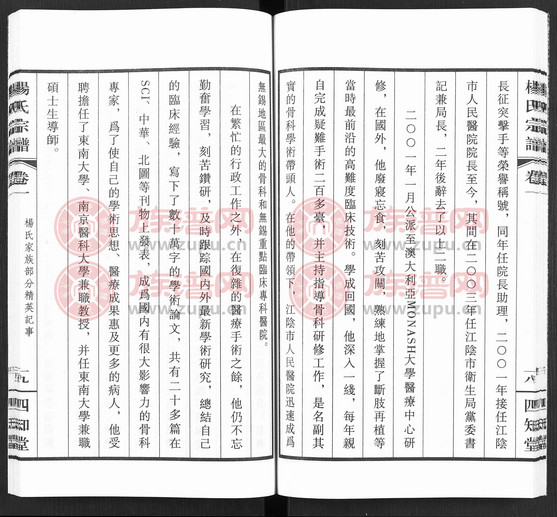 長征突擊手等榮譽稱號，同年任院長助理，二〇〇一年接任江陰
市人民醫院院長至今，其間在二〇〇三年任江陰市衛生局黨委書
記兼局長，二年後辭去了以上二職。
二〇〇一年一月公派至澳大利亞MONASH大學醫療中心研
修，在國外，他廢寢忘食，刻苦攻關，熟練地掌握了斷肢再植等
當時最前沿的高難度臨床技術。學成回國，他深入一綫，每年親
自完成疑難手術二百多臺，并主持指導骨科研修工作，是名副其
實的骨科學術帶頭人。在他的帶領下，江陰市人民醫院迅速成爲
楊氏宗譜
卷
八
四知堂
無錫地區最大的骨科和無錫重點臨床專科醫院。
在繁忙的行政工作之外，在復雜的醫療手術之餘，他仍不忘
勤奮學習，刻苦鑽研，及時跟踪國内外最新學術研究，總結自己
的臨床經驗，寫下了數十萬字的學術論文，共有二十多篇在
SCI、中華、北圖等刊物上發表，成爲國内有很大影響力的骨科
專家，爲了使自己的學術思想、醫療成果惠及更多的病人，他受
聘擔任了東南大學、南京醫科大學兼職教授，并任東南大學兼職
碩士生導師。
楊氏家族部分精英記事
楊氏宗譜
卷
九
四知堂
族譜网
www.zupu.cn
族譜网
www.zupu.cn
族譜网
www.zupu.cn
族譜网
www.zupu.cn